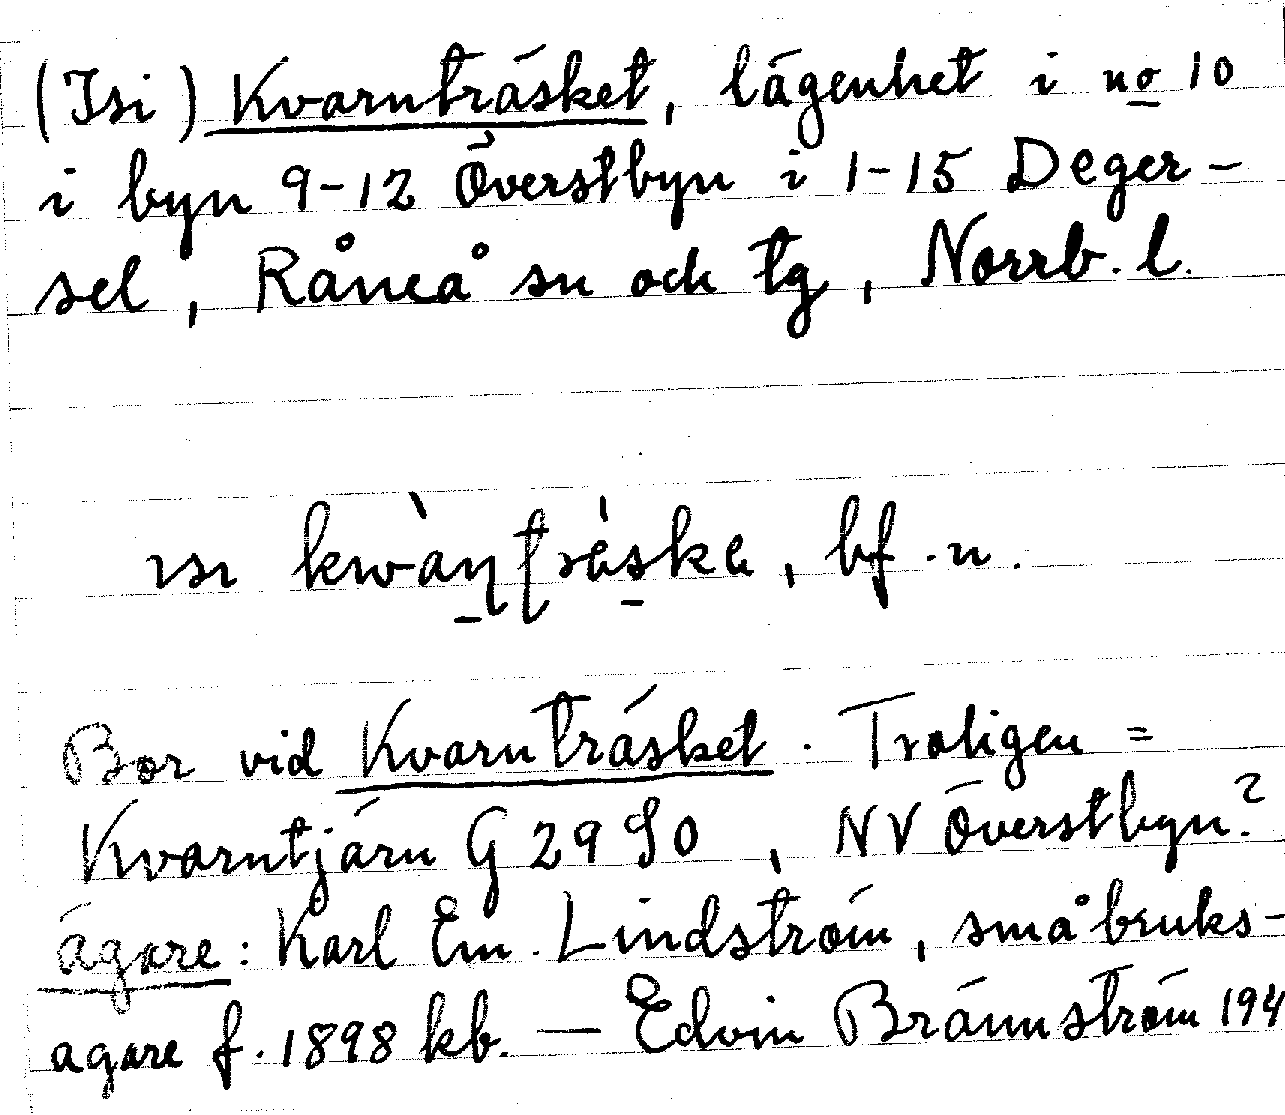 (Isi) Kvarnträsket, lägenhet i no 10
i byn 9-12 Överstbyn i 1-15 Deger-
sel, Råneå sn och tg, Norrb. l.
bf. n.
Bor vid Kvarnträsket. Troligen =
Kvarntjärn G 29 90, NV Överstbyn?
ägare: Karl Em. Lindström, småbruks-
agare f. 1898 kb. — Edvin Brännström 194